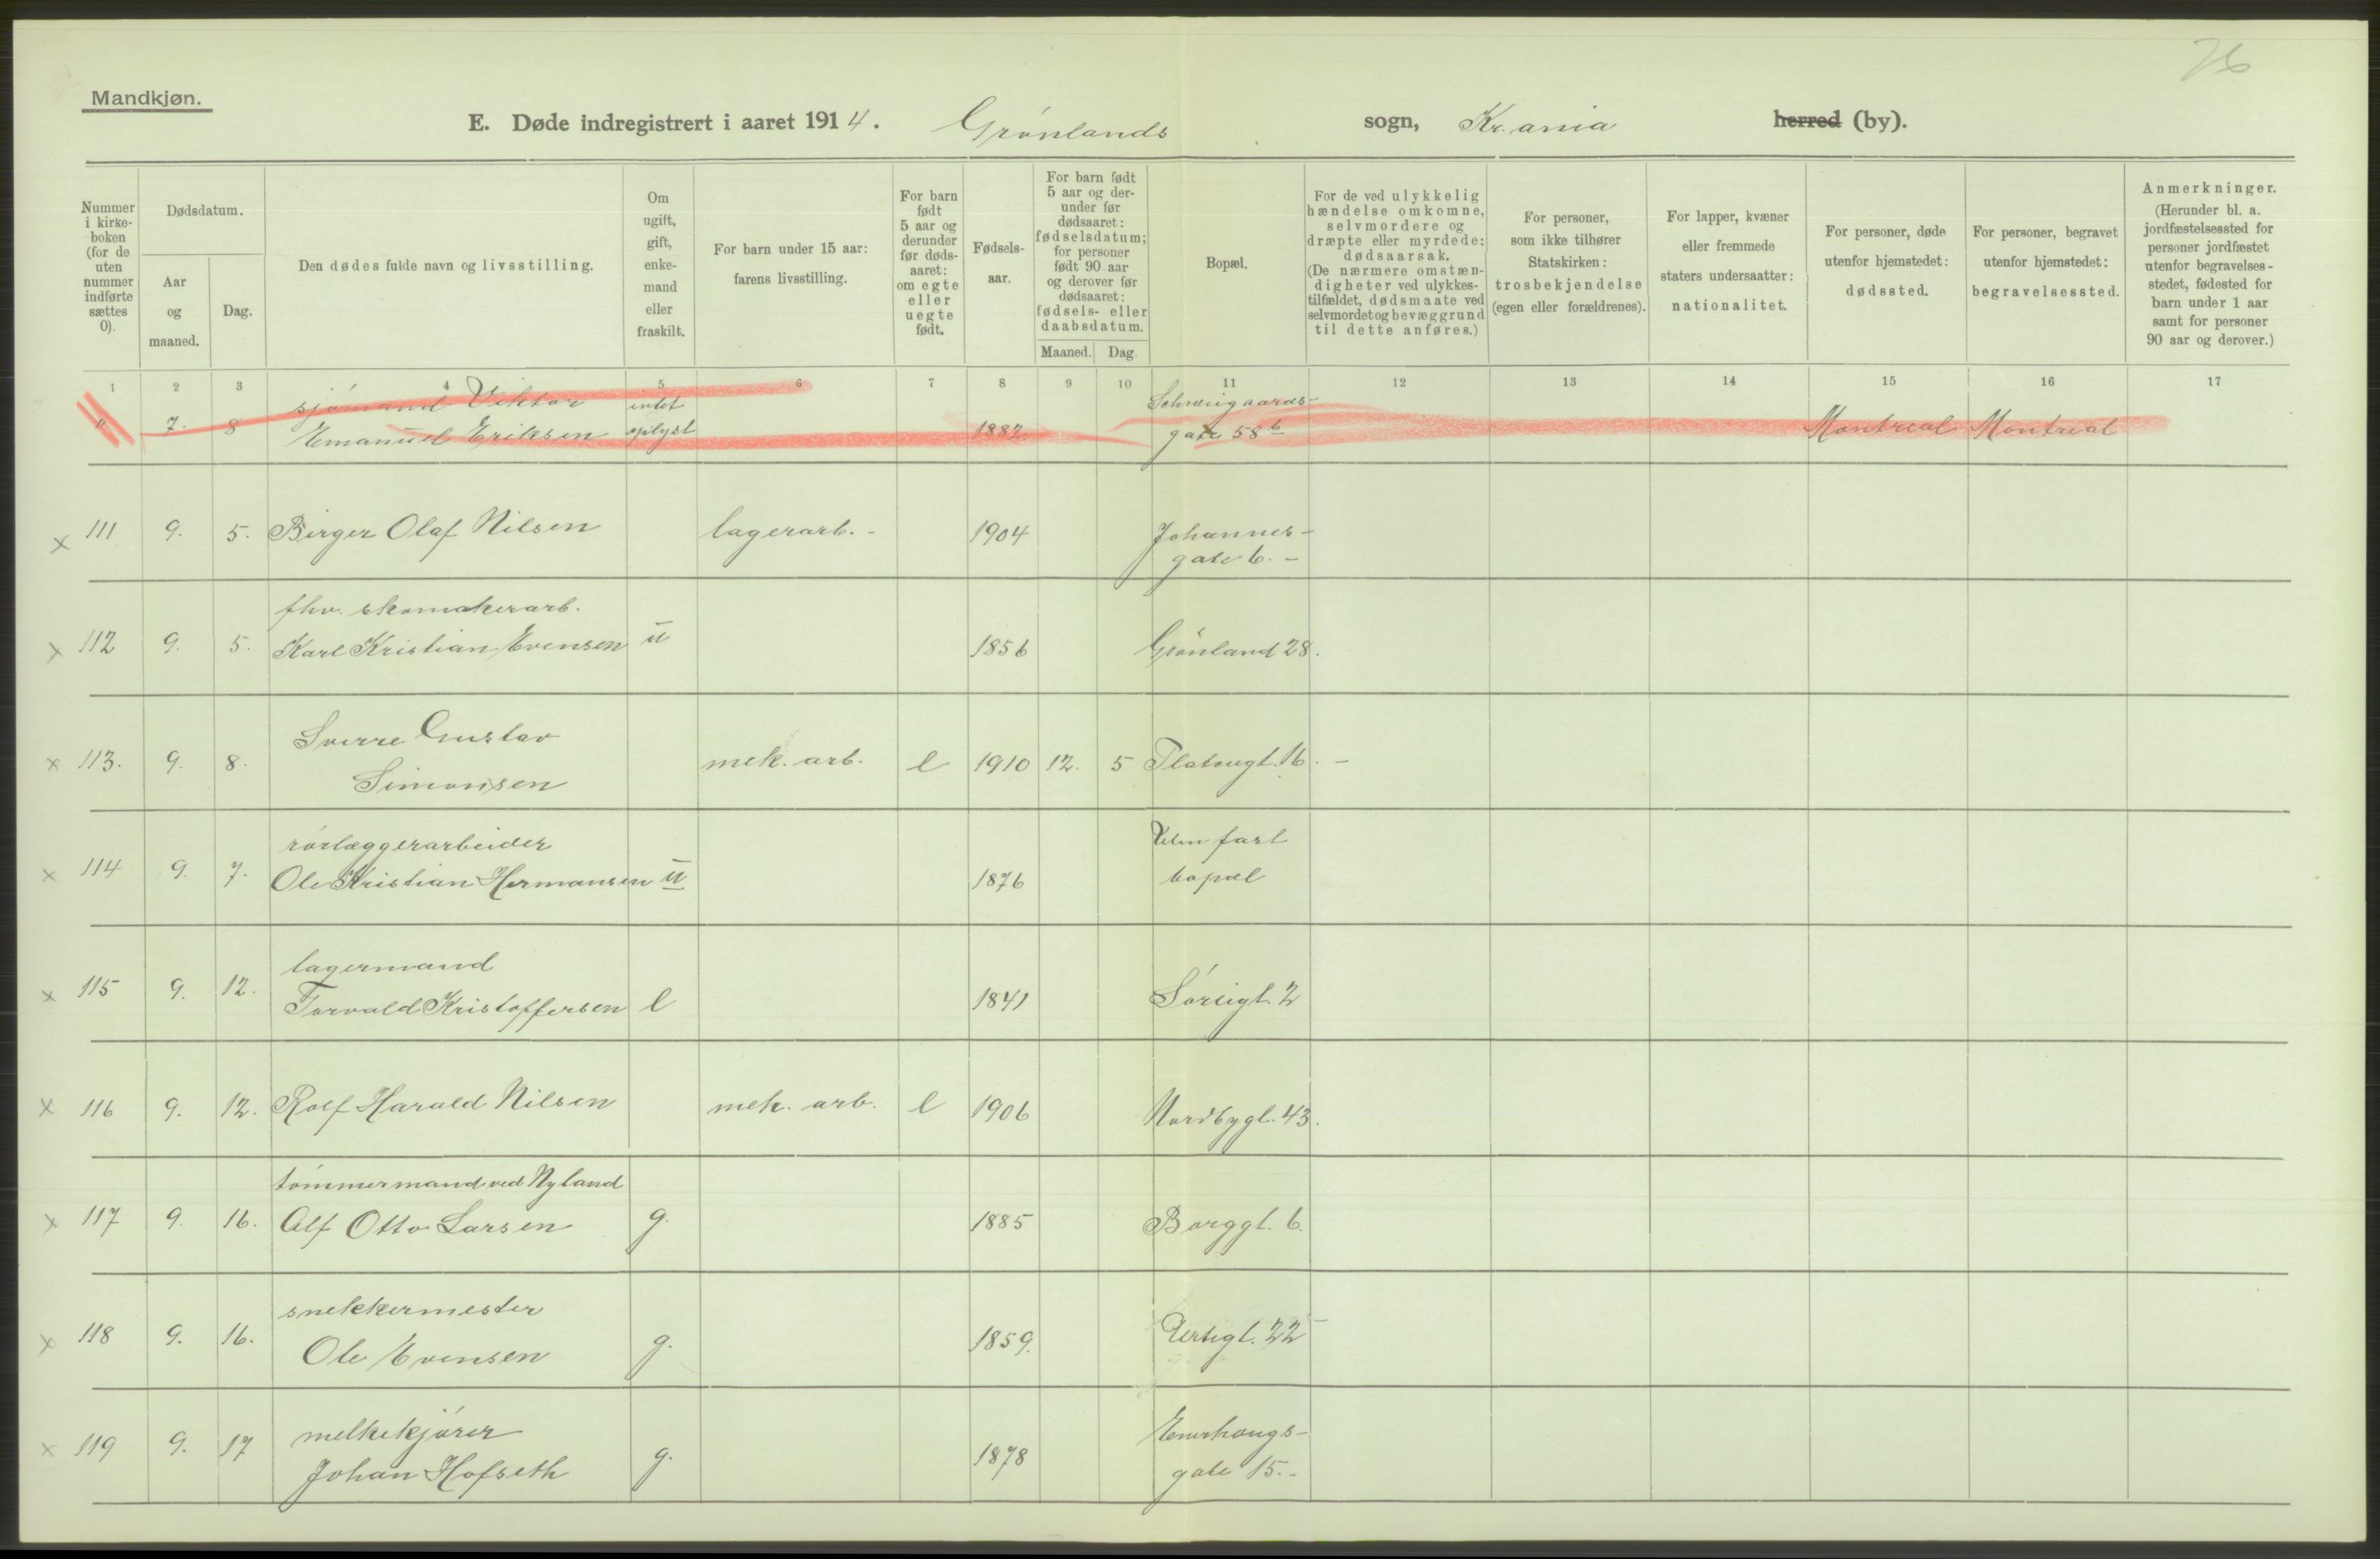 76
Mandkjøn.
E. Døde indregistrert i aaret 1914. Grønlands sogn, Kr.ania herred (by).
Nummer i kirke-boken (for de uten nummer indførte sættes 0).
Dødsdatum.
Aar og maaned.
Dag.
Den dødes fulde navn og livsstilling.
Om ugift, gift, enke-mand eller fraskilt.
For barn under 15 aar: farens livsstilling.
For barn født 5 aar og derunder før døds-aaret: om egte eller uegte født.
Fødsels-aar.
For barn født 5 aar og der-under før dødsaaret: fødselsdatum; for personer født 90 aar og derover før dødsaaret: fødsels- eller daabsdatum.
Maaned. Dag.
Bopæl.
For de ved ulykkelig hændelse omkomne, selvmordere og dræpte eller myrdede: dødsaarsak. (De nærmere omstæn-digheter ved ulykkes-tilfældet, dødsmaate ved selvmordet og bevæggrund til dette anføres.)
For personer, som ikke tilhører Statskirken: trosbekjendelse (egen eller forældrenes).
For lapper, kvæner eller fremmede staters undersaatter: nationalitet.
For personer, døde utenfor hjemstedet: dødssted.
For personer, begravet utenfor hjemstedet: begravelsessted.
Anmerkninger. (Herunder bl. a. jordfæstelsessted for personer jordfæstet utenfor begravelses-stedet, fødested for barn under 1 aar samt for personer 90 aar og derover.)
1 2 3 4 5 6 7 8 9 10 11 12 13 14 15 16 17
sjømand Viktor intet Schweigaards-
" 7. 8 Emanuel Eriksen oplyst 1887 gate 58 b Montreal Montreal
x 111 9. 5. Birger Olaf Nilsen lagerarb. - 1904 Johannes-
gate 6. -
fhv. skomakerarb.
x 112 9. 5. Karl Kristian Evensen u 1856 Grønland 28.
Sverre Gustav
x 113. 9. 8. Simonsen mek. arb. e 1910 12. 5 Platougt. 16. -
rørlæggerarbeider Uten fast
x 114 9. 7. Ole Kristian Hermansen u 1876 bopæl
lagermand
x 115 9. 12. Torvald Kristoffersen e 1841 Sørligt. 2
x 116 9. 12. Rolf Harald Nilsen mek. arb. e 1906 Nordbygt. 43.
tømmermand ved Nyland
x 117 9. 16. Alf Otto Larsen g. 1885 Borggt. 6.
snekkermester
x 118 9. 16. Ole Evensen g. 1859. Urtegt. 22
melkekjører Enerhaugs-
x 119 9. 17 Johan Hofseth g. 1878 gate 15.-